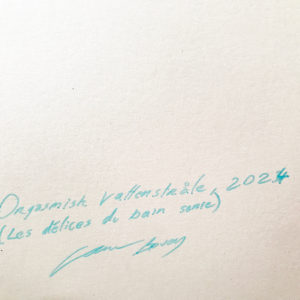 Orgasmisk vattenstråle, 2024
(Les délices du bain)